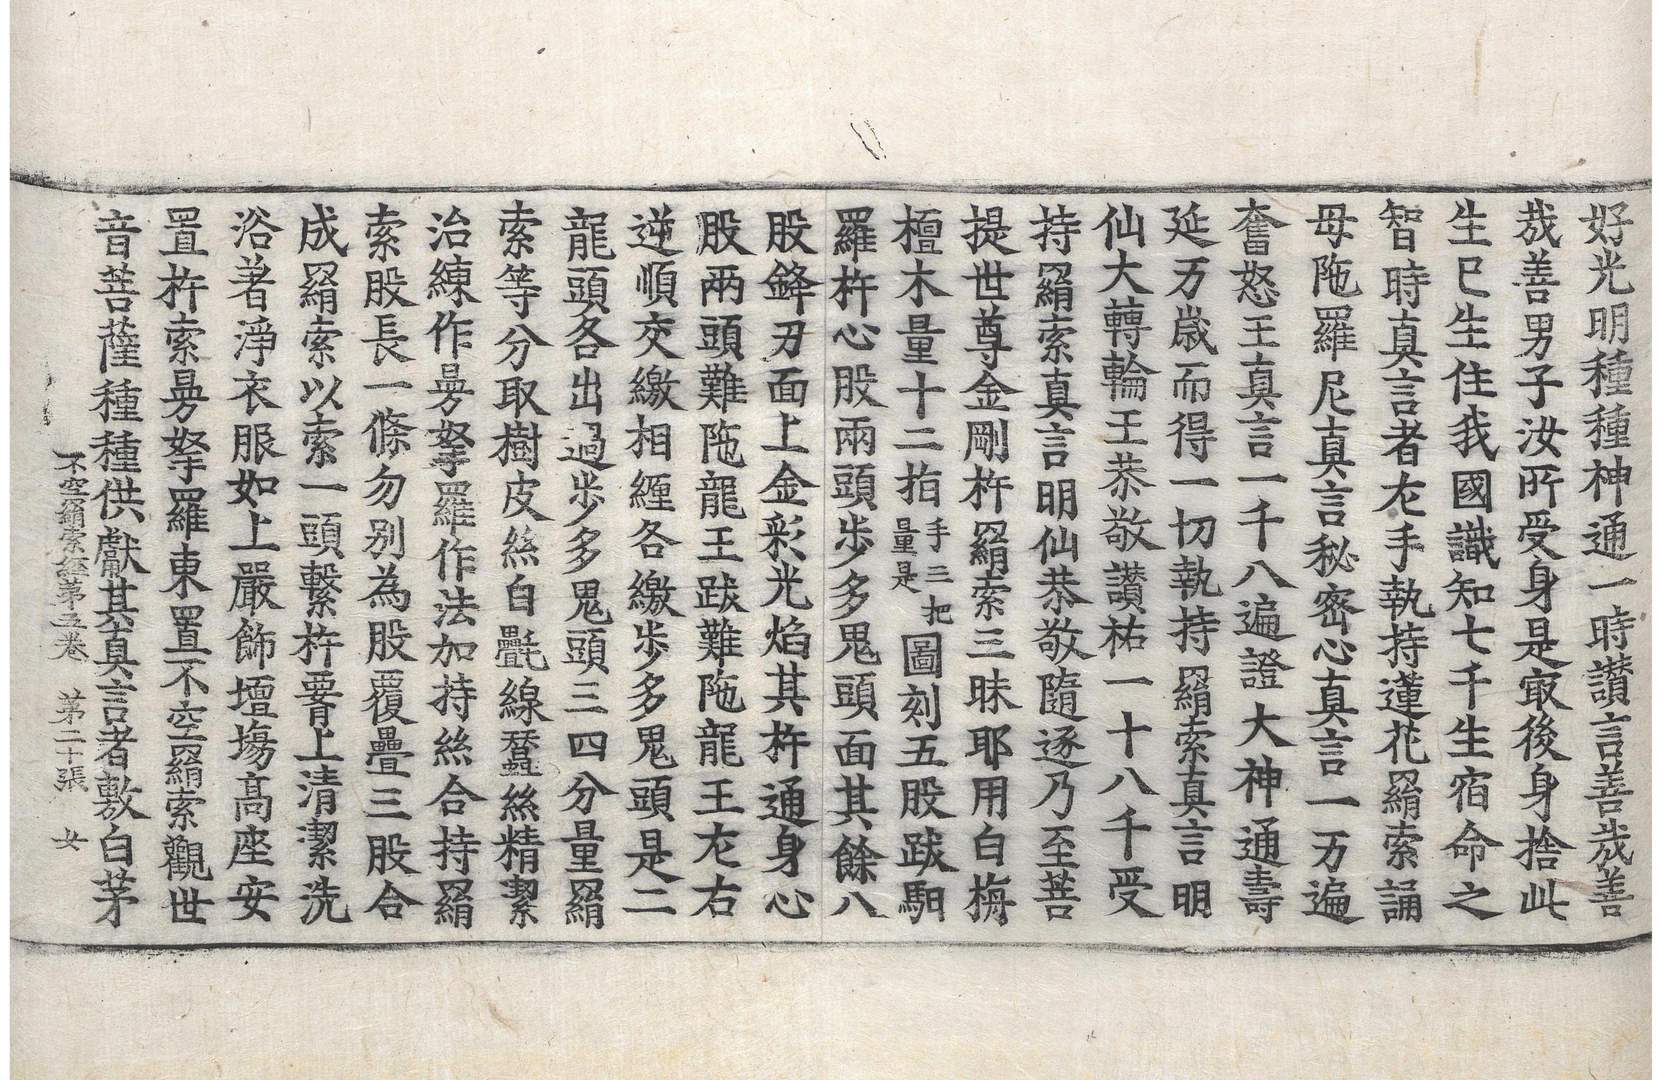 好光明種種神通一時讃言善㦲善
㦲善男子汝所受身是㝡後身捨此
生已生住我國識知七千生宿命之
智時真言者左手執持蓮花羂索誦
母陁羅尼真言秘密心真言一万遍
奮怒王真言一千八遍證大神通壽
延万歳而得一切執持羂索真言明
仙大轉輪王恭敬讃祐一十八千受
持羂索真言明仙恭敬隨逐乃至菩
提世尊金剛杵羂索三昧耶用白栴
檀木量十二指手三把量是圖刻五股跋馹
羅杵心股兩頭步多鬼頭面其餘八
股鋒刃面上金彩光焰其杵通身心
股兩頭難陁龍王跋難陁龍王左右
逆順交繳相纏各繳步多鬼頭是二
龍頭各出過步多鬼頭三四分量羂
索等分取樹皮絲白㲲線蠶絲精潔
治練作曼拏羅作法加持絲合持羂
索股長一條勿別為股覆疊三股合
成羂索以索一頭繫杵䙅上清潔洗
浴著淨衣服如上嚴飾壇場髙座安
置杵索曼拏羅東置不空羂索觀世
音菩薩種種供獻其真言者敷白茅
不空羂索經第五卷　第二十張　女